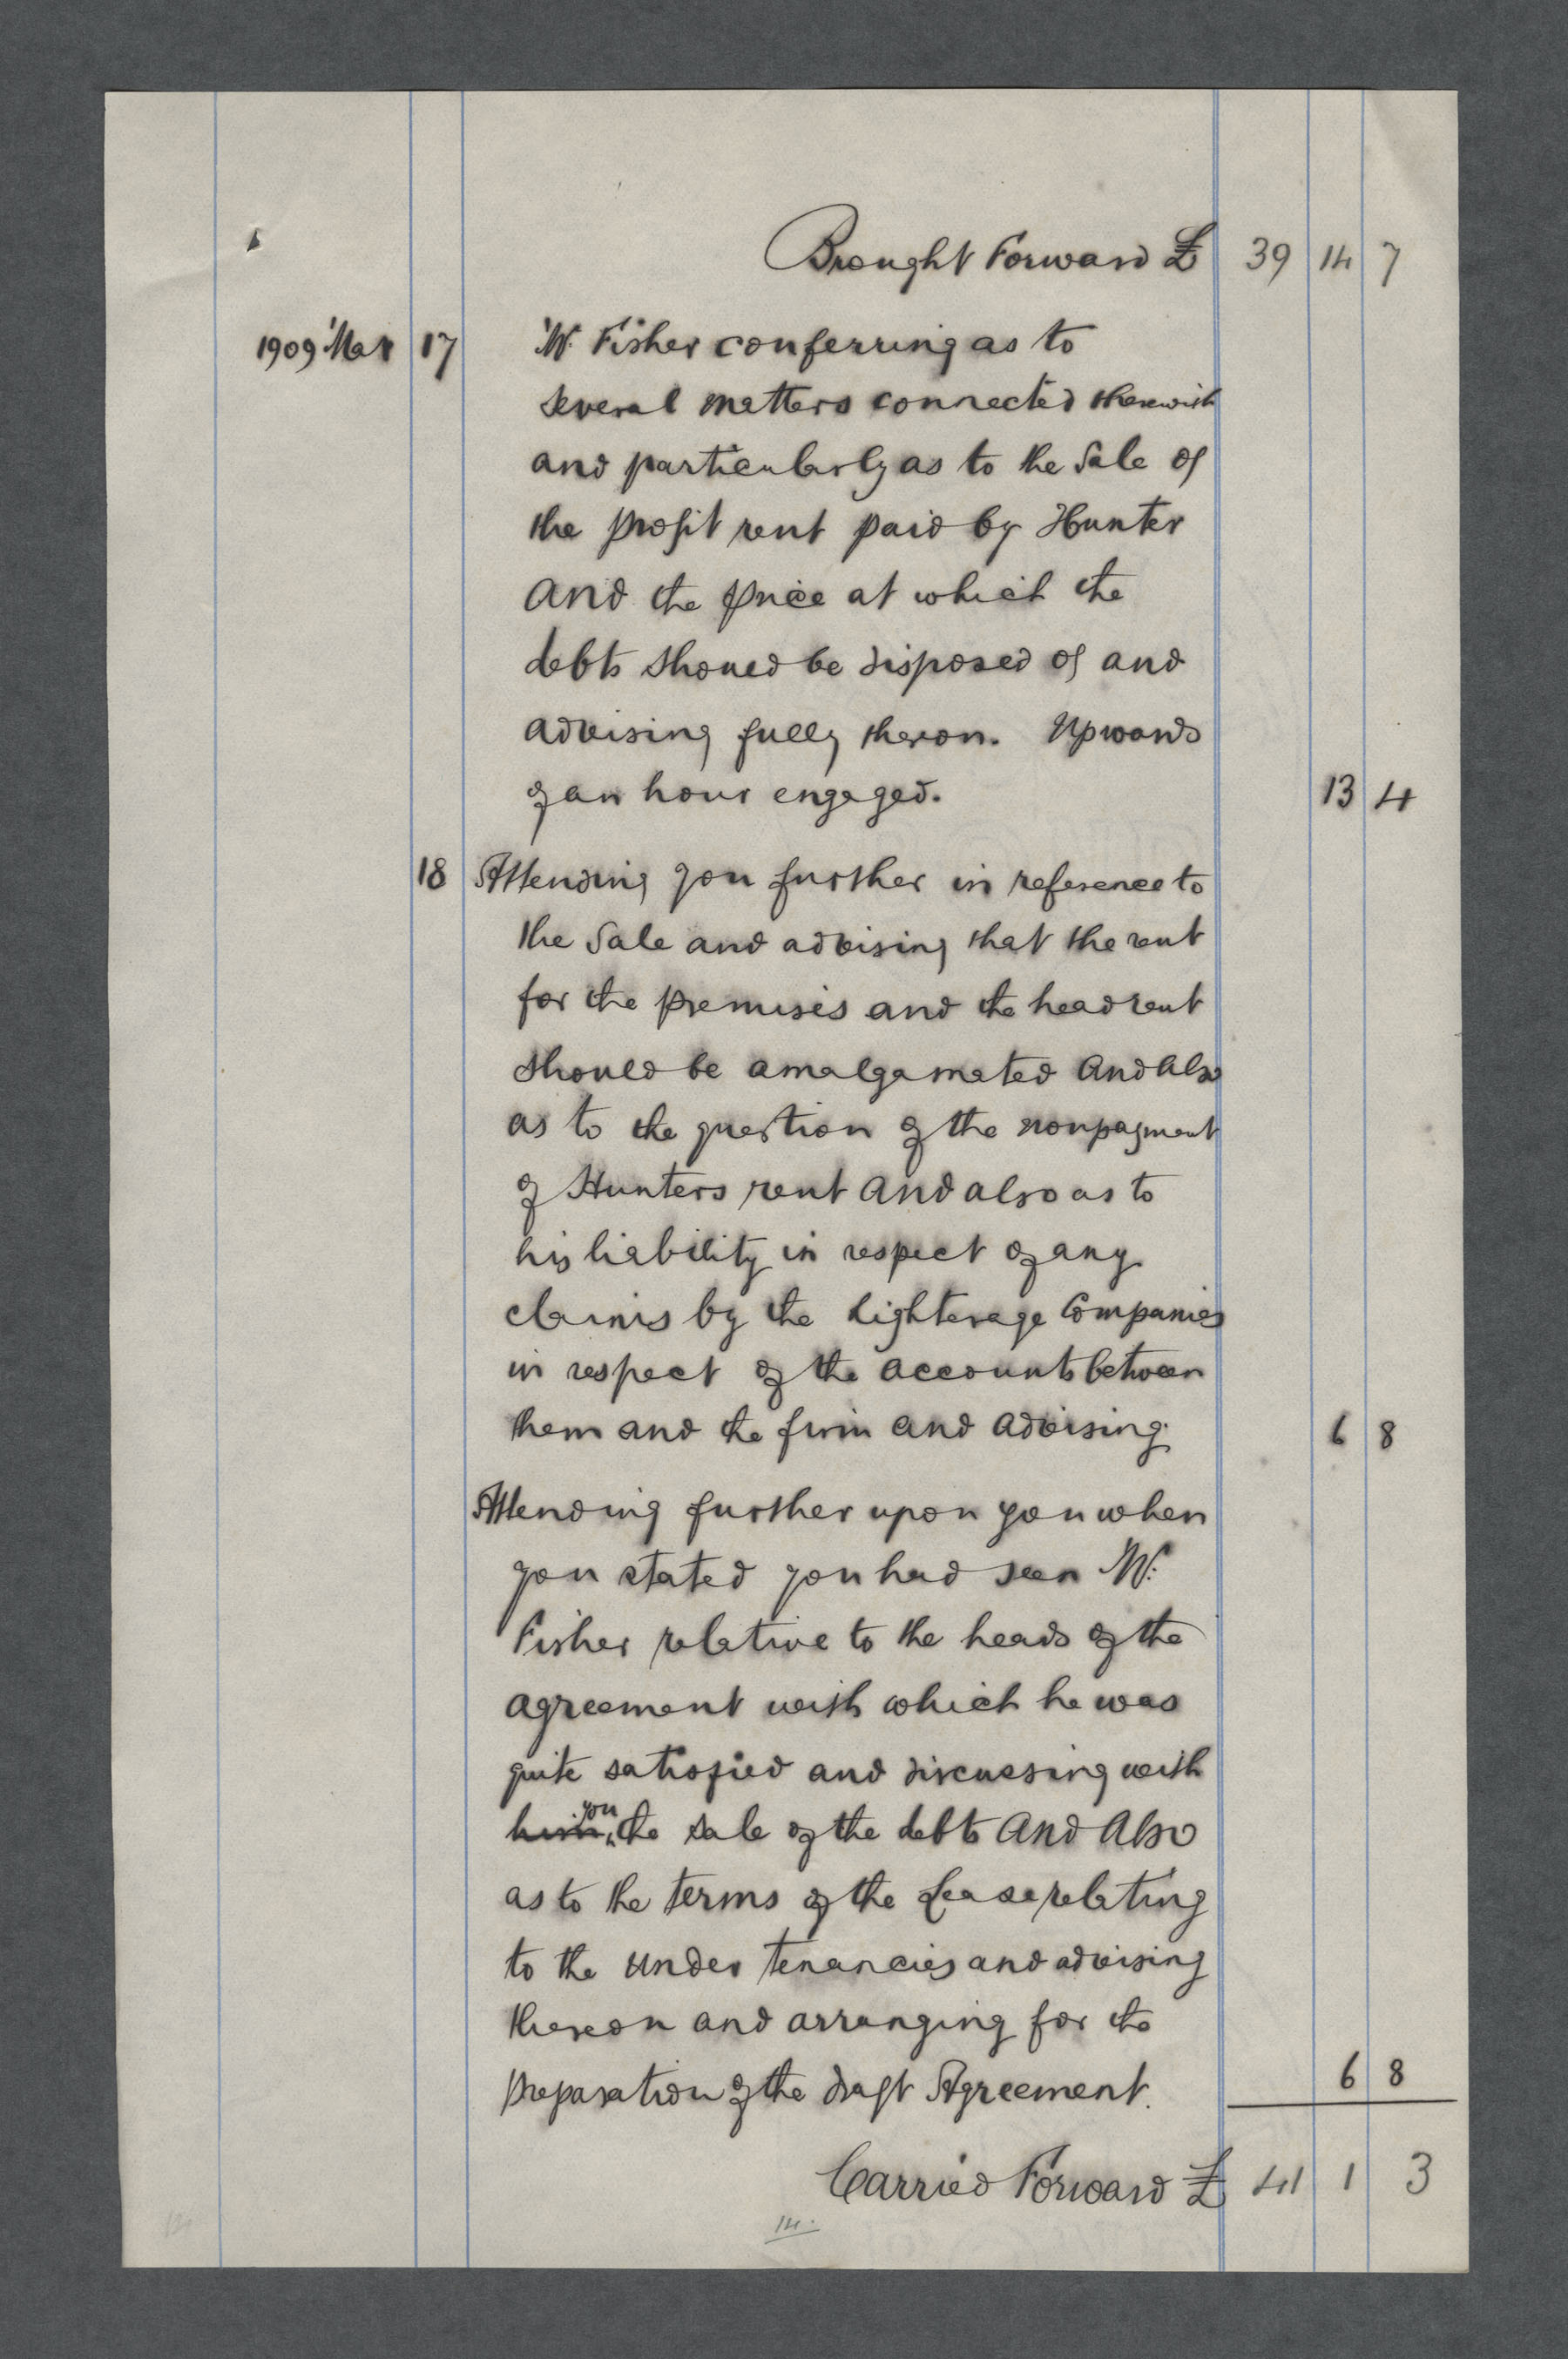 Brought Forward £ 39 14 7
1909 Mar 17 W. Fisher conferring as to
several matters connected therewith
and particularly as to the Sale of
the profit rent paid by Hunter
and the price at which the
debts should be disposed of and
advising fully theron. Upwards
of an hour engaged. 13 4
18 Attending you further in reference to
the Sale and advising that the rent
for the premises and the head rent
should be amalgamated and also
as to the question of the nonpayment
of Hunters rent and also as to
his liability in respect of any
claims by the Lighterage Companies
in respect of the accounts between
them and the firm and advising. 6 8
Attending further upon you when
you stated you had seen W.
Fisher relative to the heads of the
agreement with which he was
quite satisfied and discussing with
him you the sale of the debts and also
as to the terms of the Lease relating
to the under tenancies and advising
thereon and arranging for the
preparation of the draft Agreement. 6 8
Carried Forward £ 41 1 3
14.